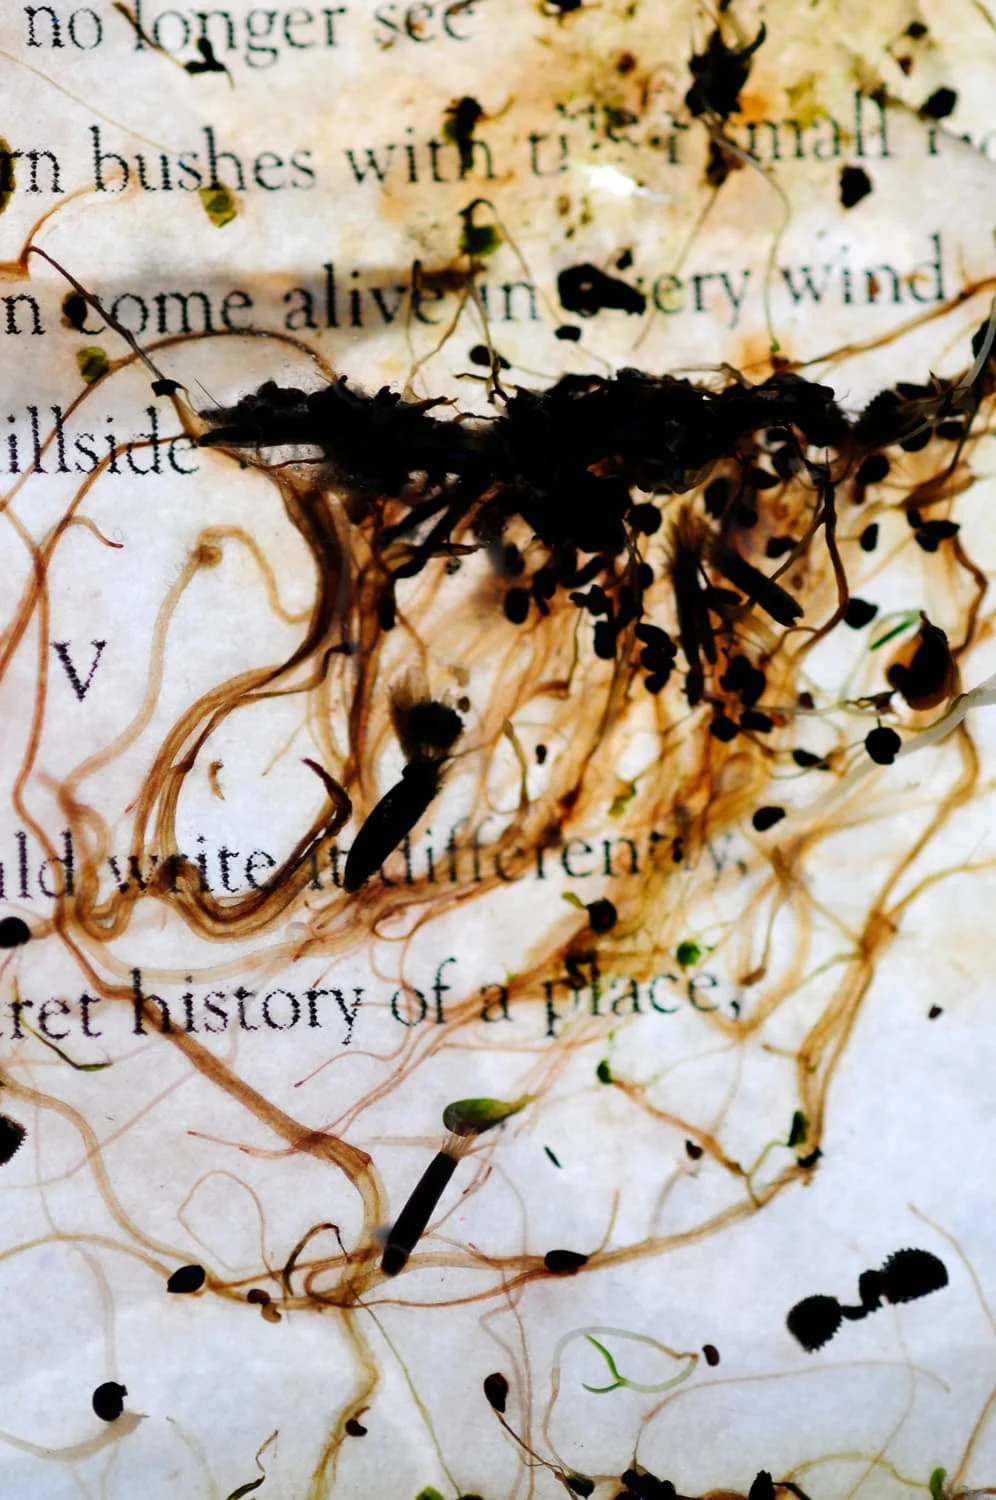 no longer see
rn bushes with small
n come alive in very wind
illside
V
uld write it differently,
ret history of a place,